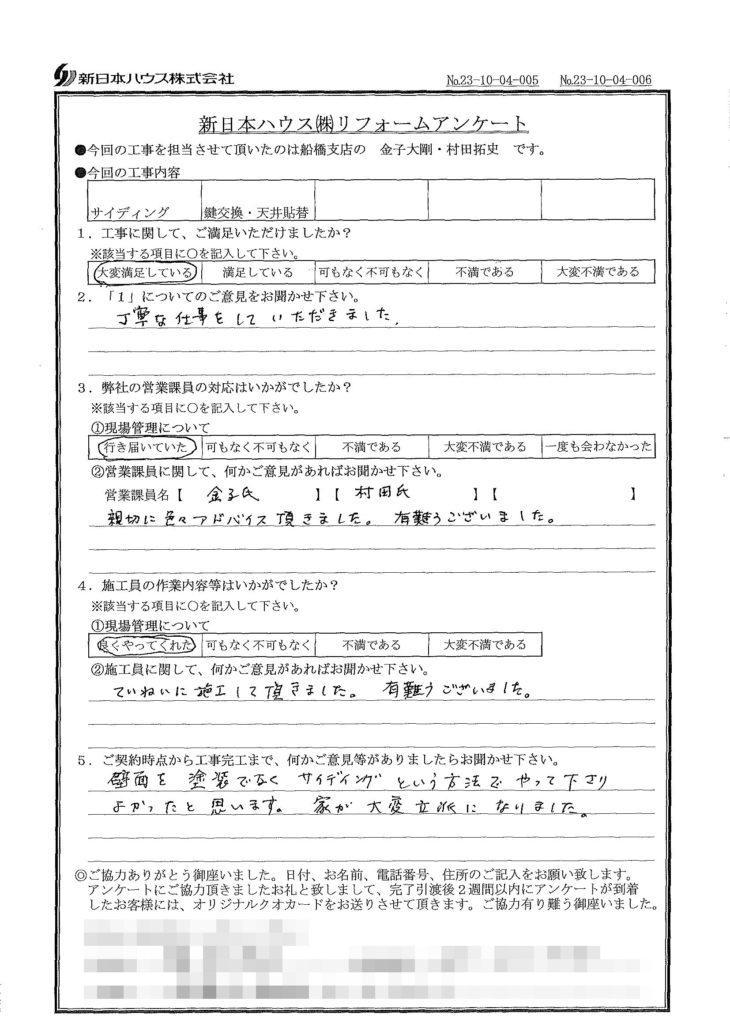 新日本ハウス株式会社
№23-10-04-005 №23-10-04-006
新日本ハウス㈱リフォームアンケート
●今回の工事を担当させて頂いたのは船橋支店の 金子大剛・村田拓史 です。
●今回の工事内容
サイディング 鍵交換・天井貼替
1.工事に関して、ご満足いただけましたか?
※該当する項目に○を記入して下さい。
大変満足している 満足している 可もなく不可もなく 不満である 大変不満である
2.「1」についてのご意見をお聞かせ下さい。
丁寧な仕事をしていただきました。
3.弊社の営業課員の対応はいかがでしたか?
※該当する項目に○を記入して下さい。
①現場管理について
行き届いていた 可もなく不可もなく 不満である 大変不満である 一度も会わなかった
②営業課員に関して、何かご意見があればお聞かせ下さい。
営業課員名【 金子氏 】【 村田氏 】【 】
親切に色々アドバイス頂きました。有難うございました。
4.施工員の作業内容等はいかがでしたか?
※該当する項目に○を記入して下さい。
①現場管理について
良くやってくれた 可もなく不可もなく 不満である 大変不満である
②施工員に関して、何かご意見があればお聞かせ下さい。
ていねいに施工して頂きました。有難うございました。
5.ご契約時点から工事完工まで、何かご意見等がありましたらお聞かせ下さい。
壁面を塗装でなくサイディングという方法でやって下さり
よかったと思います。家が大変立派になりました。
◎ご協力ありがとう御座いました。日付、お名前、電話番号、住所のご記入をお願い致します。
アンケートにご協力頂きましたお礼と致しまして、完了引渡後2週間以内にアンケートが到着
したお客様には、オリジナルクオカードをお送りさせて頂きます。ご協力有り難う御座いました。